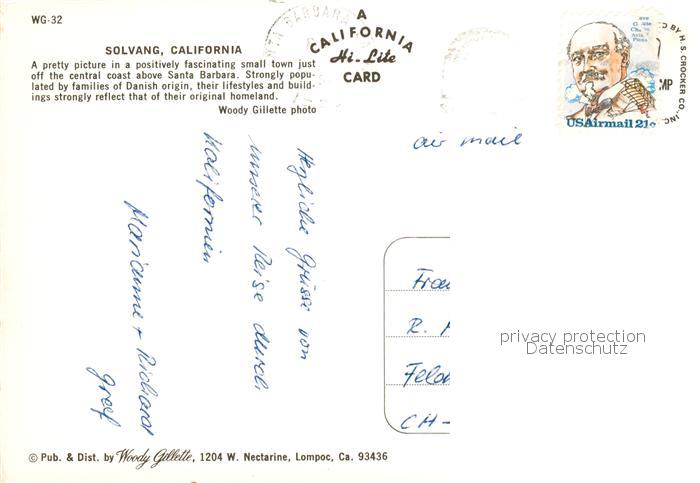 WG-32
SOLVANG, CALIFORNIA
A pretty picture in a positively fascinating small town just
off the central coast above Santa Barbara. Strongly popu-
lated by families of Danish origin, their lifestyles and build-
ings strongly reflect that of their original homeland.
Woody Gillette photo
A
CALIFORNIA
Hi-Lite
CARD
BARBARA
USAirmail 21c
BY H. S. CROCKER CO. INC.
air mail
Herzliche Grüsse von
unserer Reise durch
Kalifornien
Marianne + Richard
Graf
R.
CH-
privacy protection
Datenschutz
© Pub. & Dist. by Woody Gillette, 1204 W. Nectarine, Lompoc, Ca. 93436